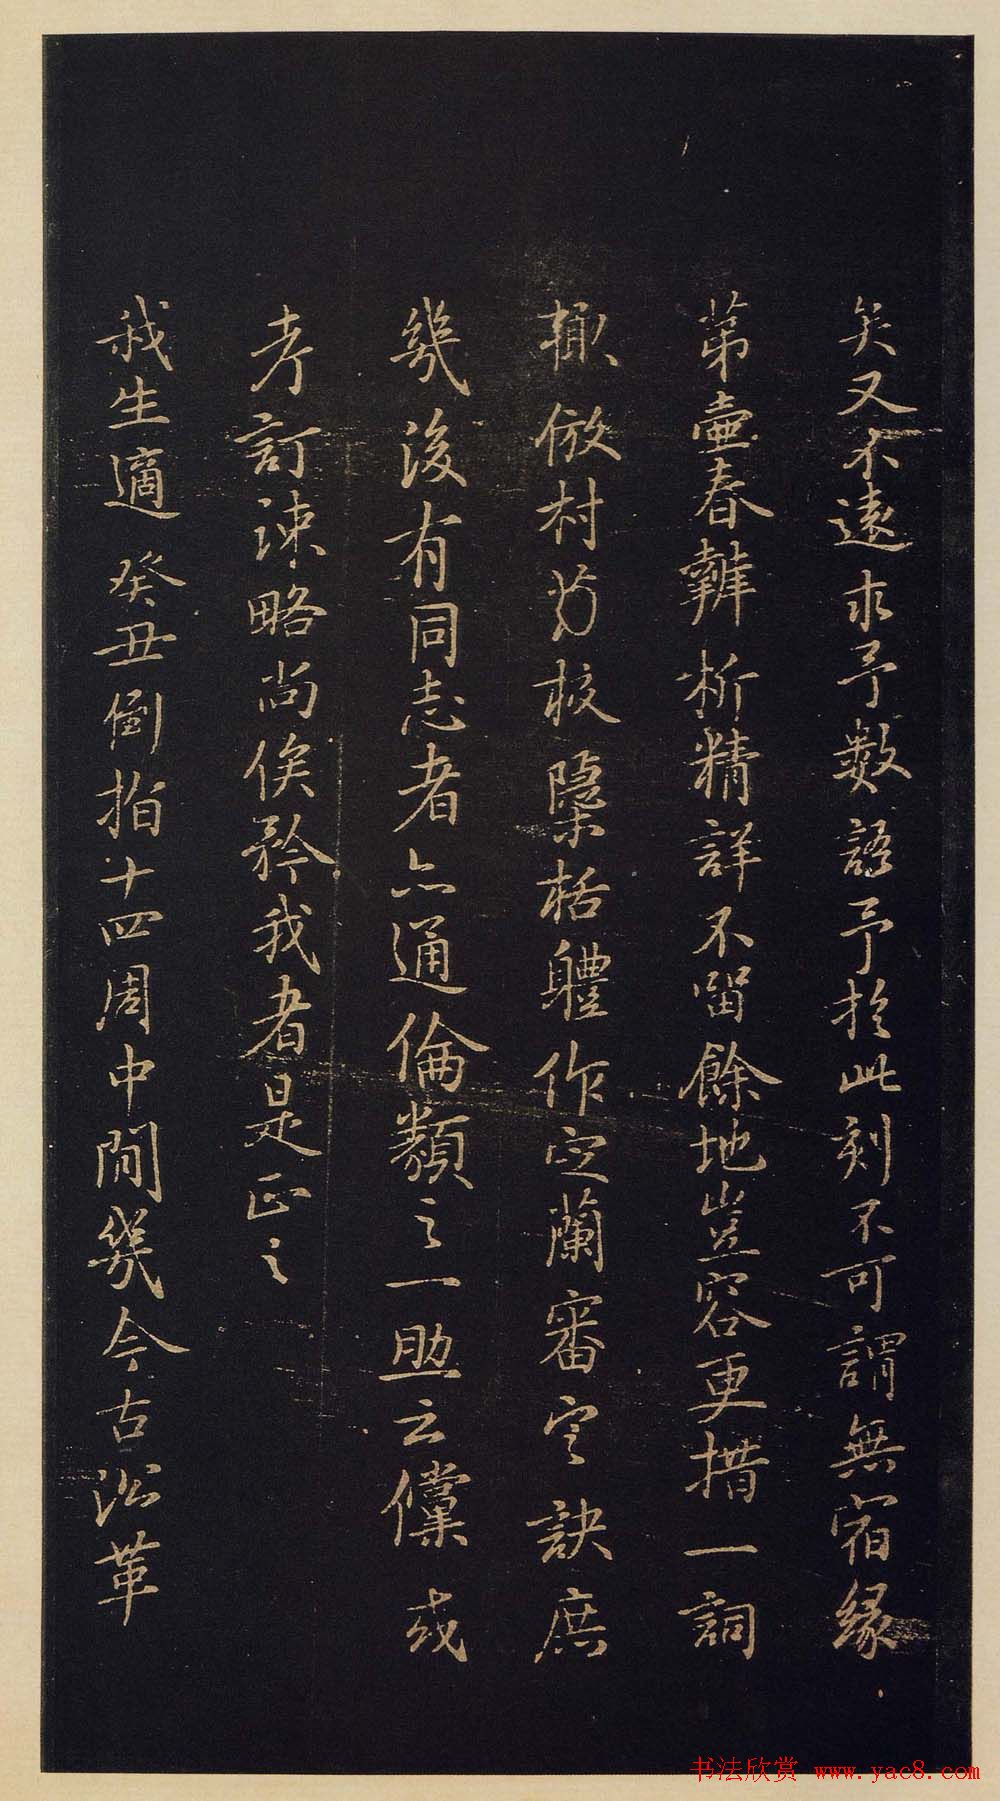 矣又不遠求予數語予於此刻不可謂無宿緣
苐壷春辨析精詳不留餘地豈容更措一詞
輙倣村労校檃栝軆作定蘭審定訣庶
幾後有同志者亦通倫類之一助云儻或
考訂疎略尚俟矜我者是正之
我生適癸丑倒指十四周中間幾今古沿革
书法欣赏 www.yac8.com